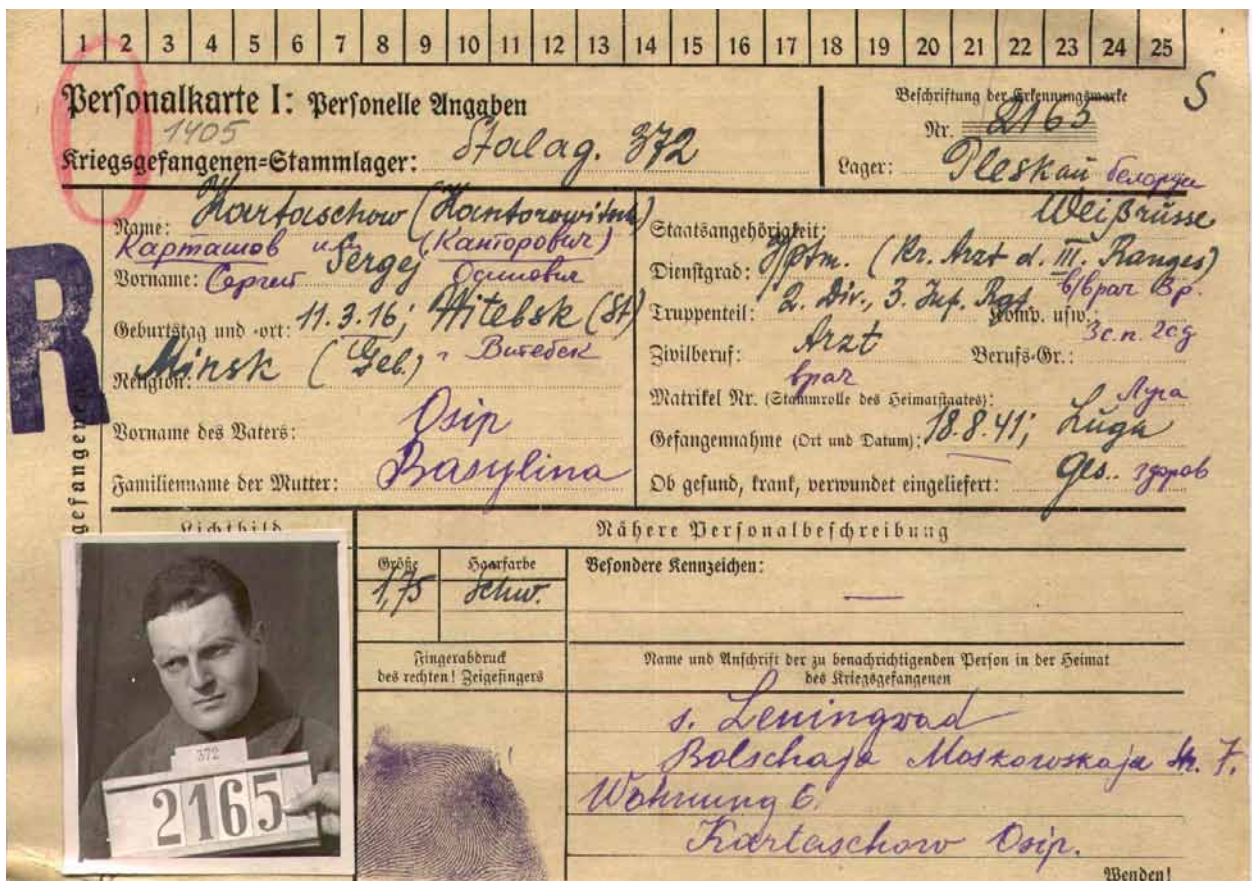 1 2 3 4 5 6 7 8 9 10 11 12 13 14 15 16 17 18 19 20 21 22 23 24 25
Personalkarte I: Personelle Angaben
1405
Kriegsgefangenen=Stammlager: Stalag. 372
Beschriftung der Erkennungsmarke
Nr. 2165
Lager: Pleskau
S
R
Name: Kartaschow (Kantorowitsch)
Карташов или (Канторович)
Vorname: Сергей Sergej Осипович
Geburtstag und -ort: 11.3.16; Witebsk (St)
г Витебск
Minsk (Geb.)
Religion:
Vorname des Vaters: Osip
Familienname der Mutter: Basylina
белорус
Weißrusse
Staatsangehörigkeit:
Dienstgrad: Hptm. (Kr. Arzt d. III. Ranges)
в/врач 3р.
Truppenteil: 2. Div., 3. Inf. Rgt Komp. usw.:
3с.п. 2сд
Zivilberuf: Arzt Berufs=Gr.:
врач
Matrikel Nr. (Stammrolle des Heimatstaates):
Луга
Gefangennahme (Ort und Datum): 18.8.41; Luga
Ob gesund, krank, verwundet eingeliefert: Ges.. здоров
gefangenen
Lichtbild
372
2165
Nähere Personalbeschreibung
Größe Haarfarbe Besondere Kennzeichen:
1,75 schw. —
Fingerabdruck
des rechten! Zeigefingers
Name und Anschrift der zu benachrichtigenden Person in der Heimat
des Kriegsgefangenen
s. Leningrad
Bolschaja Moskowskaja Nr. 7.
Wohnung 6.
Kartaschow Osip.
Wenden!